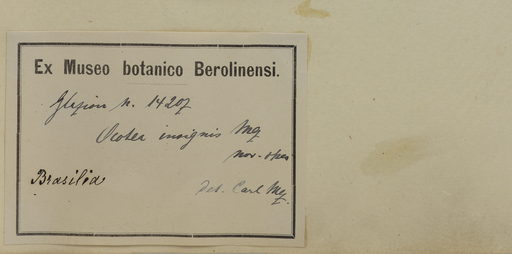 Ex Museo botanico Berolinensi.
Glaziou n. 14207
Ocotea insignis Mez
nov. spec
Brasilia
Det. Carl Mez.